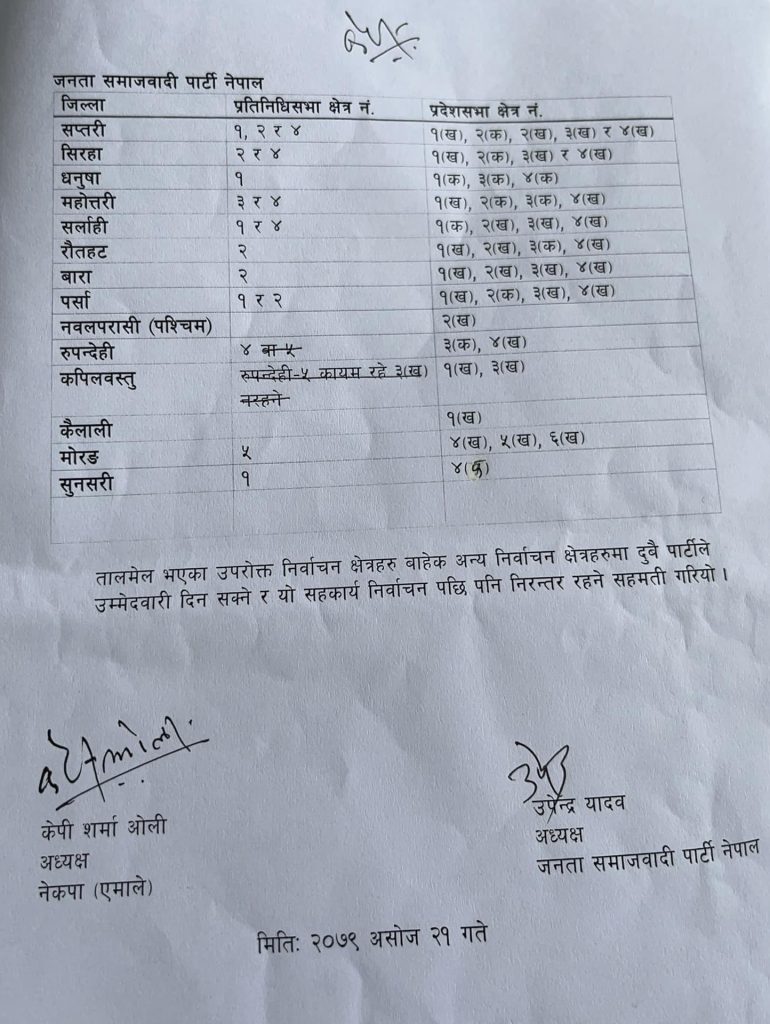 जनता समाजवादी पार्टी नेपाल
जिल्ला प्रतिनिधिसभा क्षेत्र नं. प्रदेशसभा क्षेत्र नं.
सप्तरी १, २ र ४ १(ख), २(क), २(ख), ३(ख) र ४(ख)
सिरहा २ र ४ १(ख), २(क), ३(ख) र ४(ख)
धनुषा १ १(क), ३(क), ४(क)
महोत्तरी ३ र ४ १(ख), २(क), ३(क), ४(ख)
सर्लाही १ र ४ १(क), २(ख), ३(ख), ४(ख)
रौतहट २ १(ख), २(ख), ३(क), ४(ख)
बारा २ १(ख), २(ख), ३(ख), ४(ख)
पर्सा १ र २ १(ख), २(क), ३(ख), ४(ख)
नवलपरासी (पश्चिम) २(ख)
रुपन्देही ४ बा ५ ३(क), ४(ख)
कपिलवस्तु रुपन्देही-५ कायम रहे ३(ख) १(ख), ३(ख)
नरहने
कैलाली १(ख)
मोरङ ५ ४(ख), ५(ख), ६(ख)
सुनसरी १ ४(क)
तालमेल भएका उपरोक्त निर्वाचन क्षेत्रहरु बाहेक अन्य निर्वाचन क्षेत्रहरुमा दुबै पार्टीले
उम्मेदवारी दिन सक्ने र यो सहकार्य निर्वाचन पछि पनि निरन्तर रहने सहमती गरियो ।
केपी शर्मा ओली
अध्यक्ष
नेकपा (एमाले)
उपेन्द्र यादव
अध्यक्ष
जनता समाजवादी पार्टी नेपाल
मितिः २०७९ असोज २१ गते